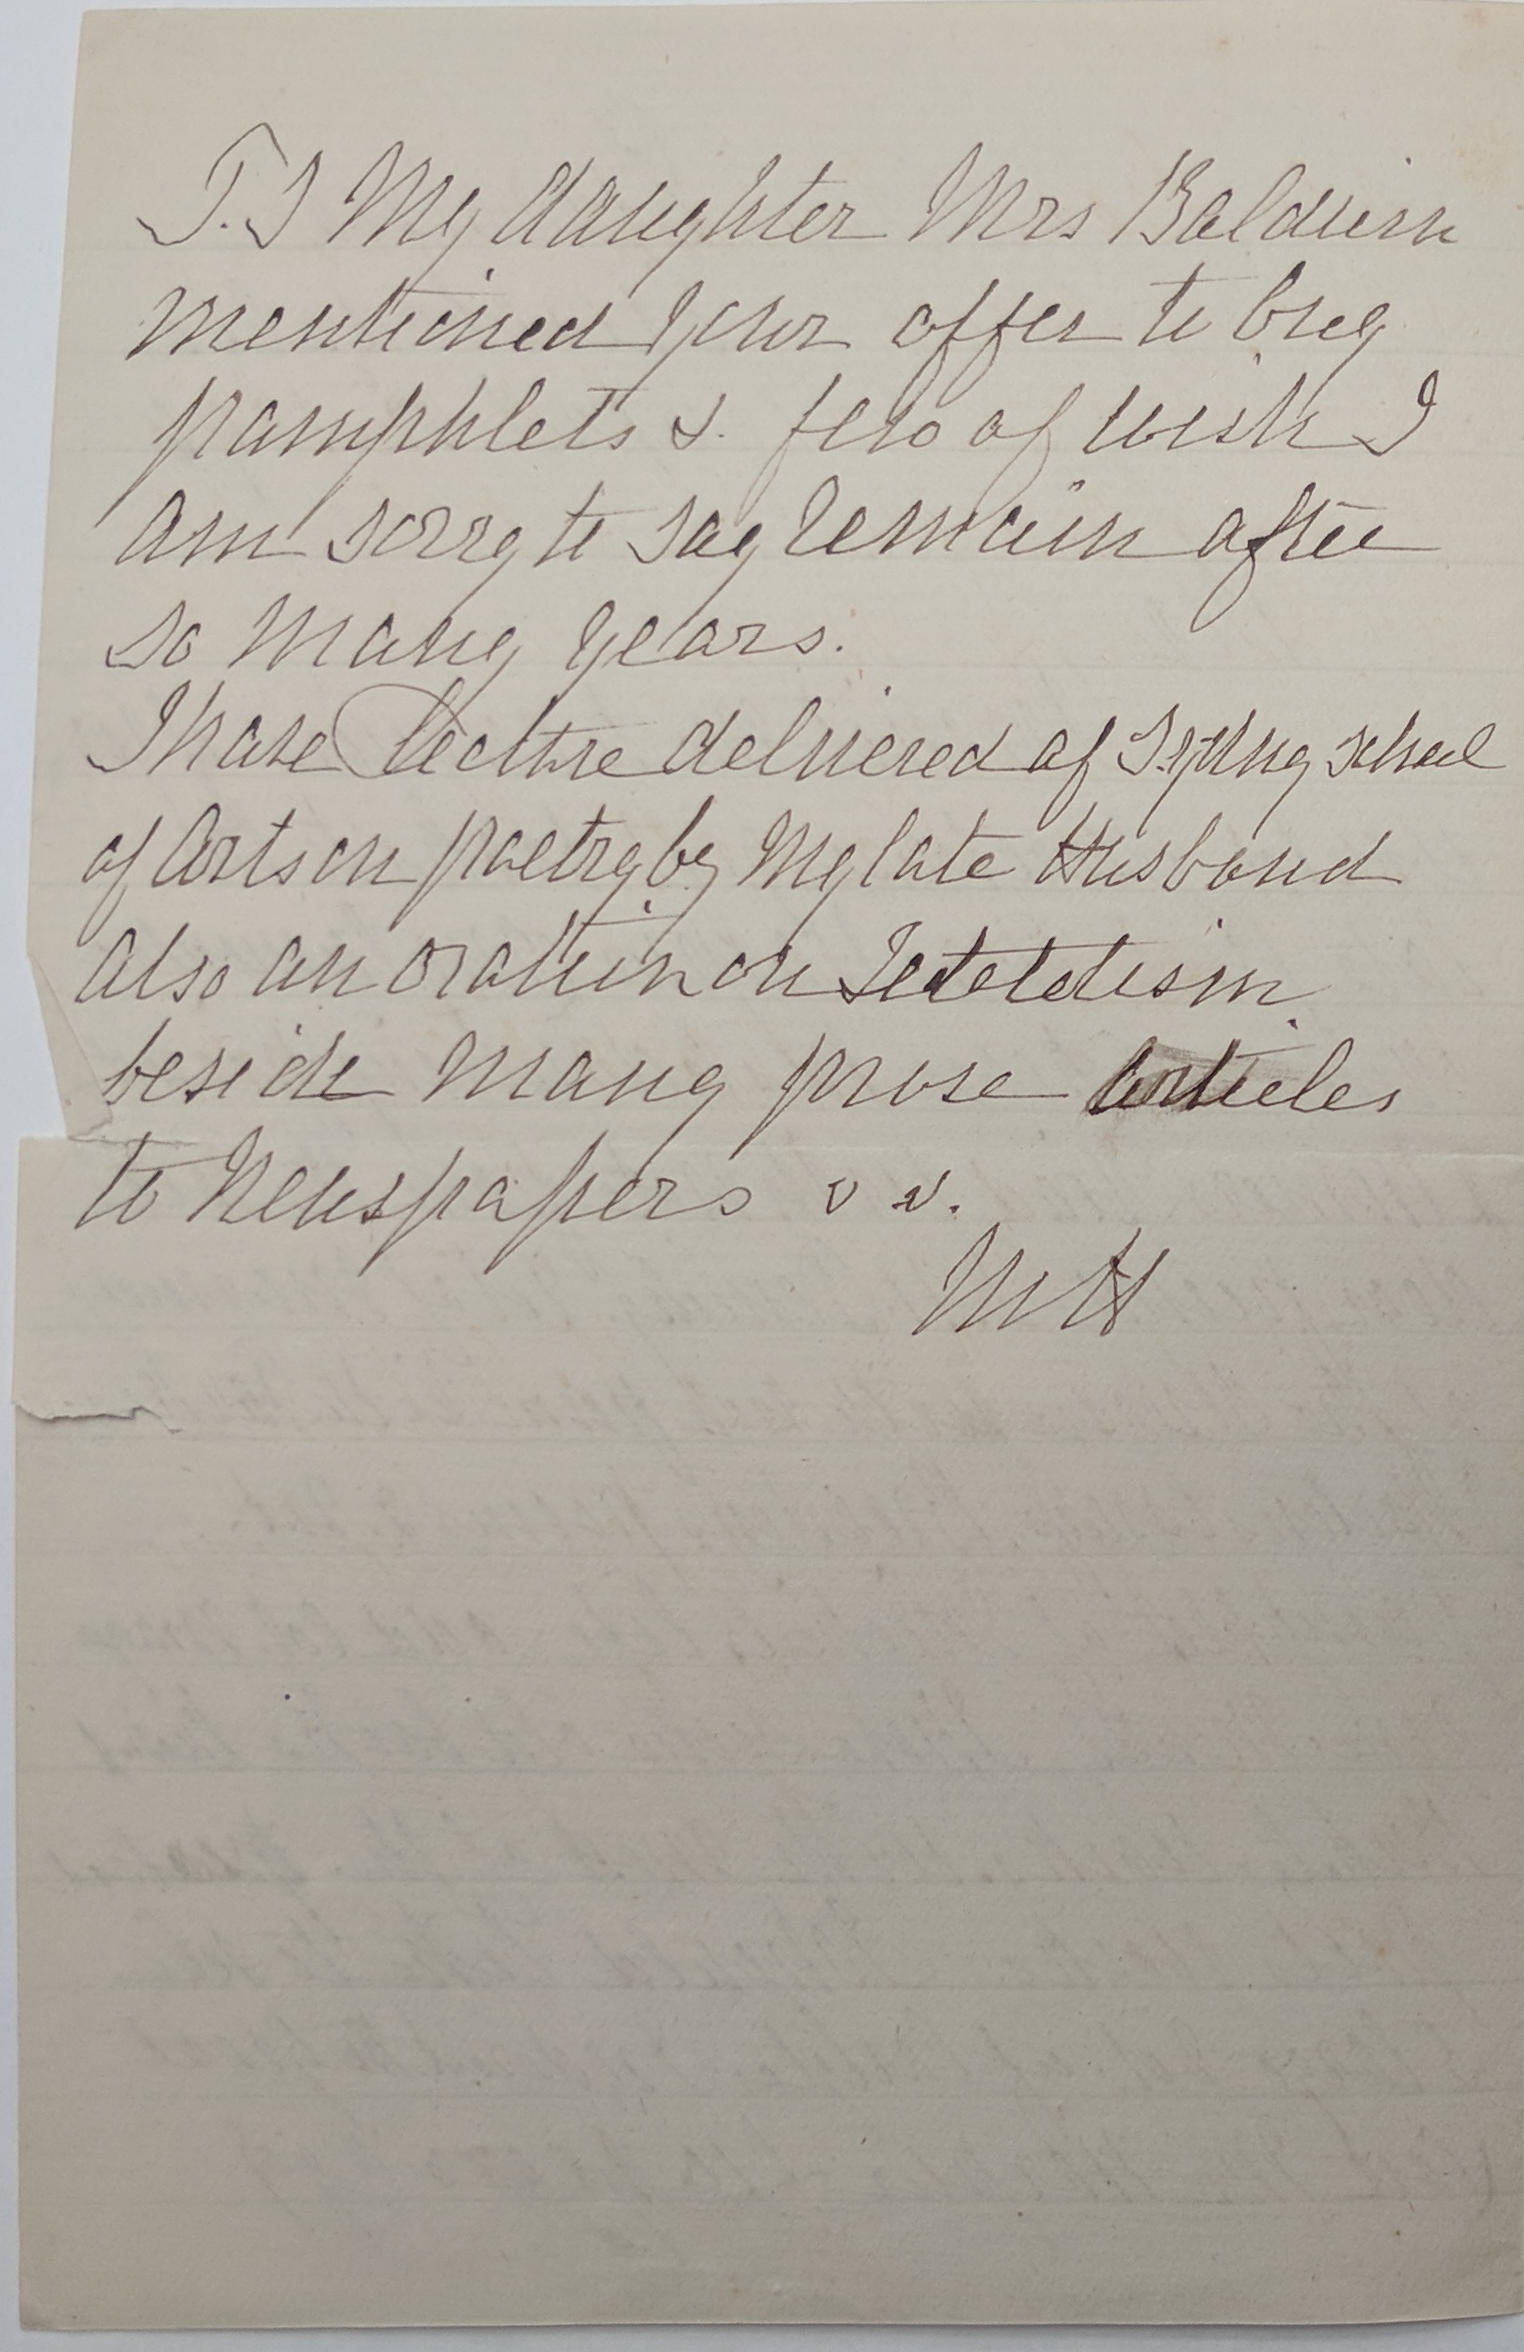 My daughter Mrs Balduin
mentioned your offer to buy
pamphlets &. few of wish I
am sorry to say remain after
so many years.
I have lecture delivered of Sydny school
of Arts on poetry by My late Husband
also an oration on
beside many prose articles
to Newspapers
MH